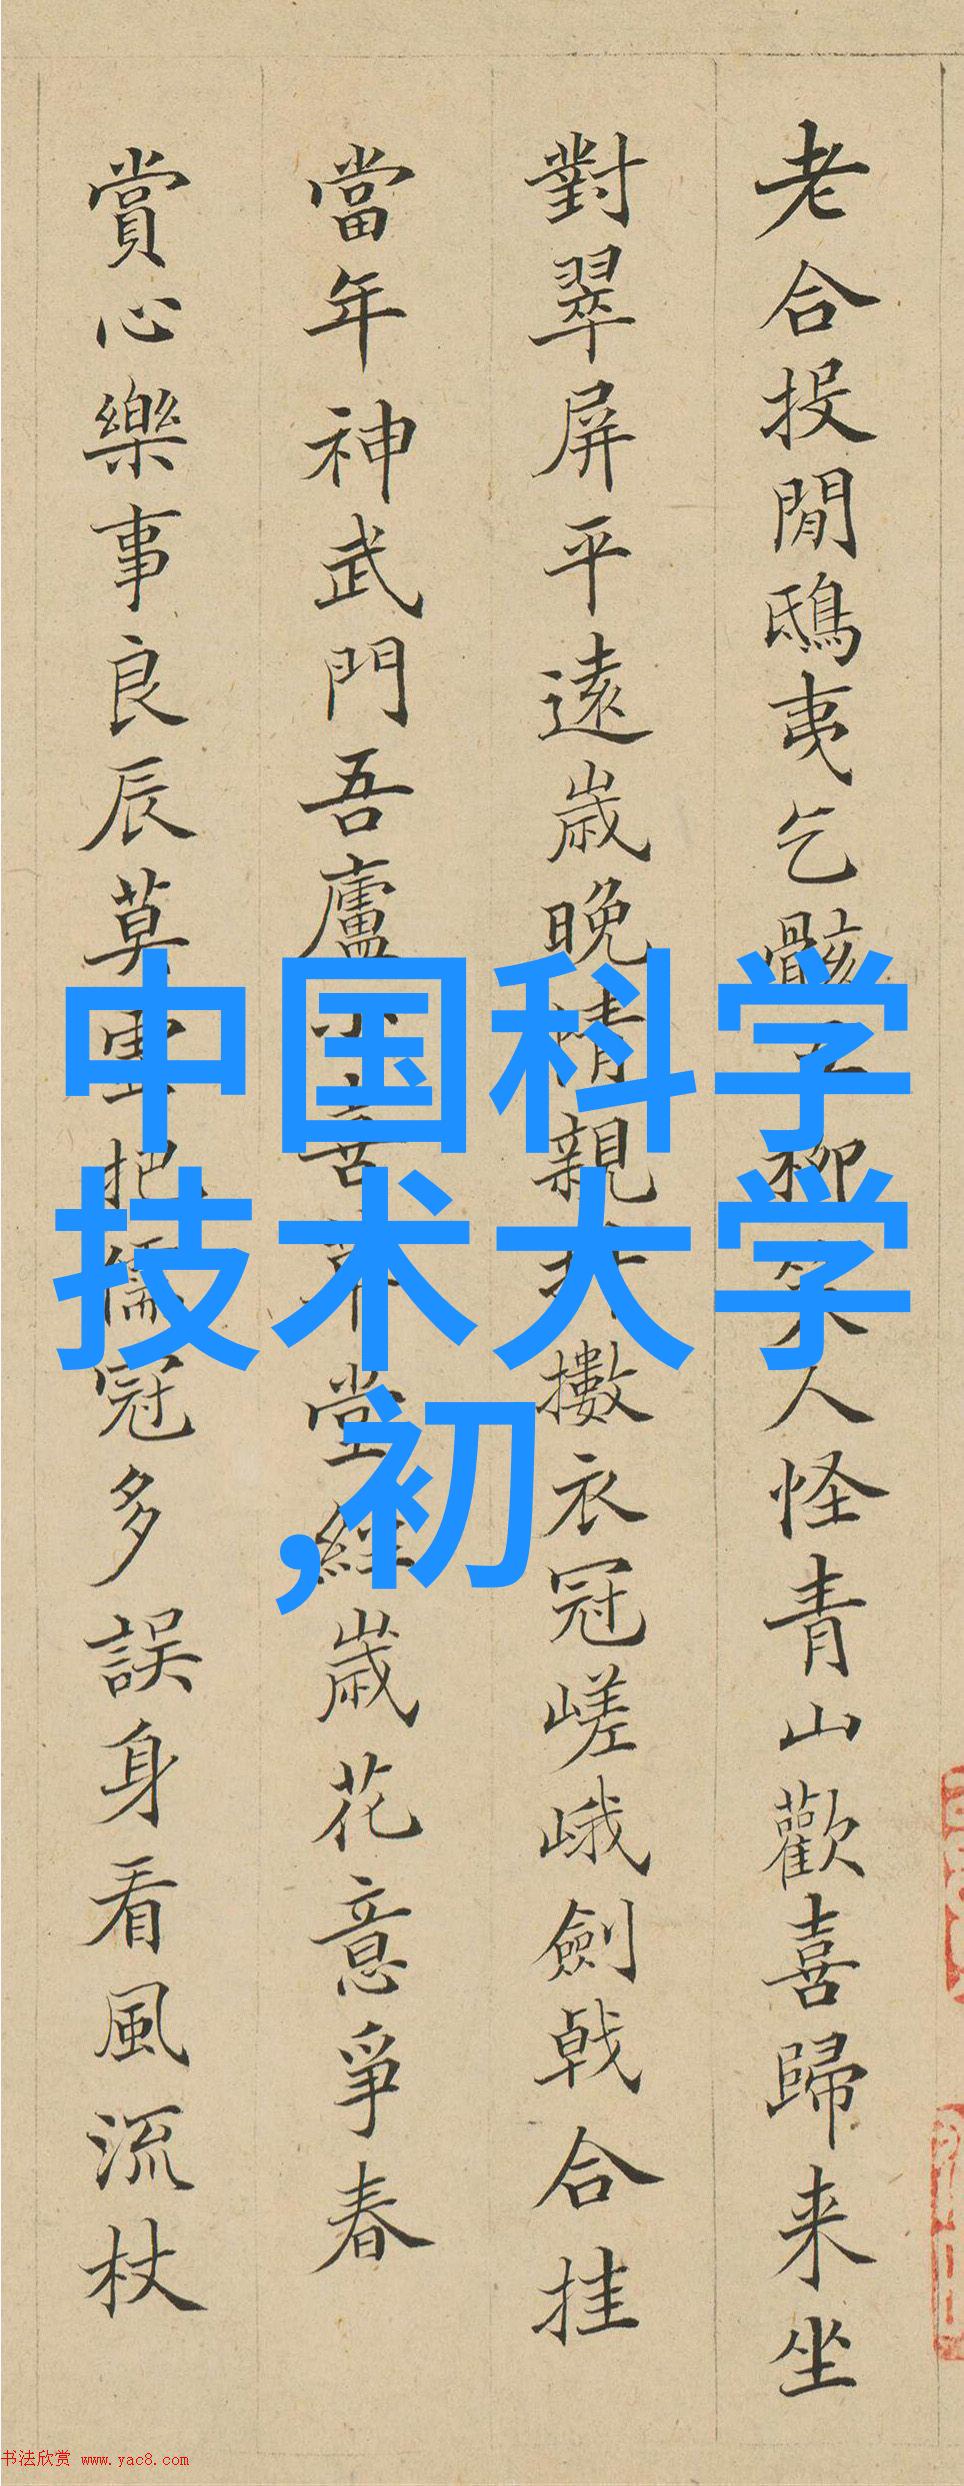 老合投閒鴟夷乞骸柳人怪青山歡喜歸来坐
對翠屏平遠歲晚情親擻衣冠嵯峨劍戟合挂
當年神武門吾廬堂經歲花意爭春
賞心樂事良辰莫把儒冠多誤身看風流杖
中国科学
技术大学
,初
书法欣赏 www.yac8.com